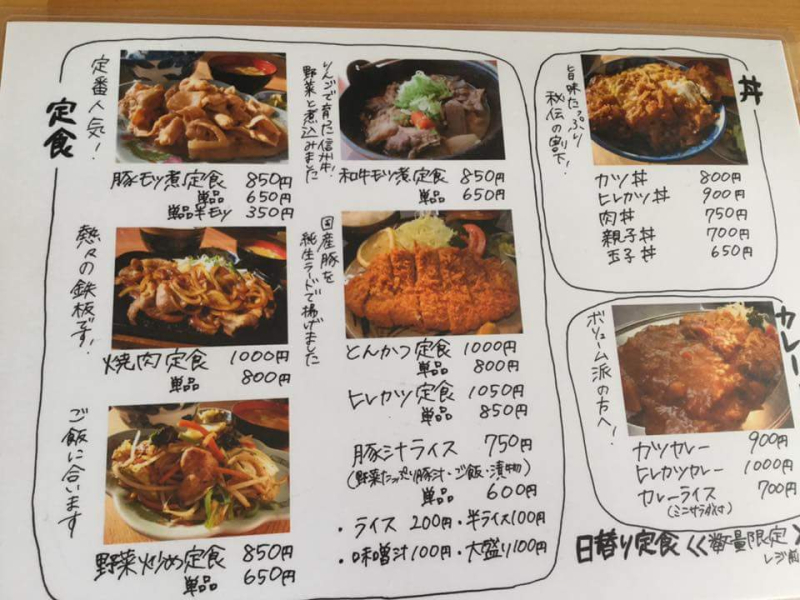 定食
定番人気！
豚モツ煮定食 850円
単品 650円
単品半モツ 350円
りんごで育った信州牛！
野菜と煮込みました
和牛モツ煮定食 850円
単品 650円
熱々の鉄板です！
焼肉定食 1000円
単品 800円
国産豚を
純生ラードで揚げました
とんかつ定食 1000円
単品 800円
ヒレカツ定食 1050円
単品 850円
ご飯に合います
野菜炒め定食 850円
単品 650円
豚汁ライス 750円
(野菜たっぷり豚汁・ご飯・漬物)
単品 600円
・ライス 200円・半ライス100円
・味噌汁100円・大盛り100円
丼
旨味たっぷり
秘伝の割下！
カツ丼 800円
ヒレカツ丼 900円
肉丼 750円
親子丼 700円
玉子丼 650円
カレー
ボリューム派の方へ！
カツカレー 900円
ヒレカツカレー 1000円
カレーライス 700円
(ミニサラダ付)
日替り定食 《数量限定》
レジ前